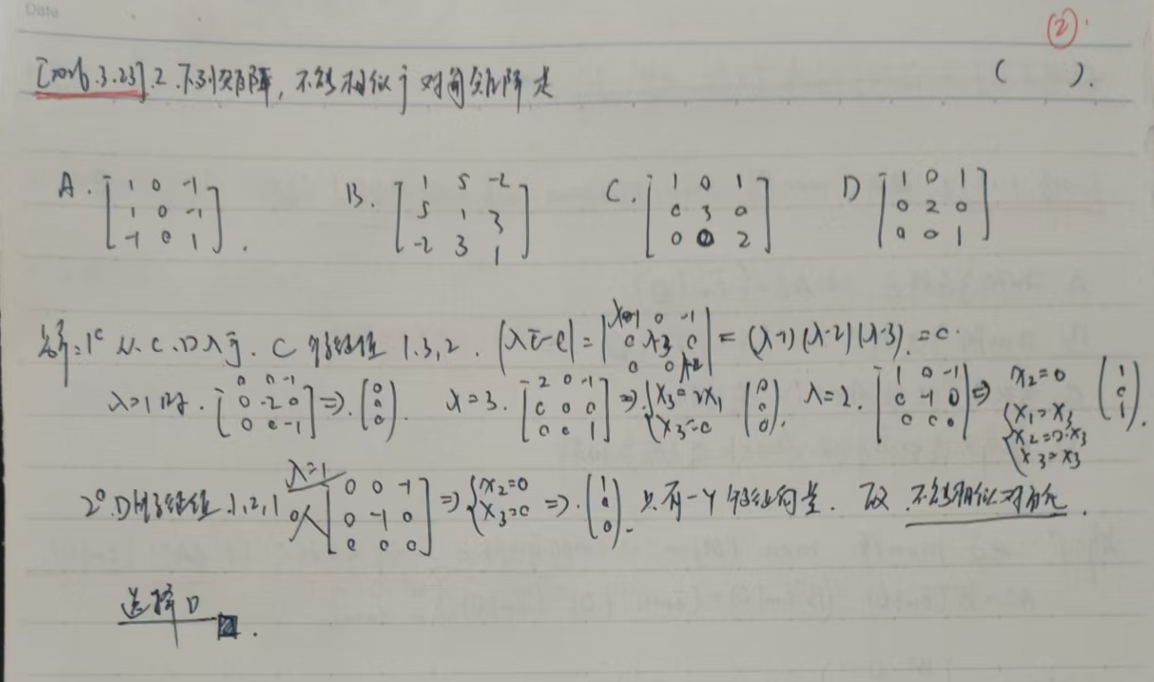 Date
②
[2026.3.23].2.下列矩阵,不能相似于对角矩阵是 ( ).
A. [1 0 -1; 1 0 -1; -1 0 1]. B. [1 5 -2; 5 1 3; -2 3 1] C. [1 0 1; 0 3 0; 0 0 2] D [1 0 1; 0 2 0; 0 0 1]
解:1° 从 C.D入手. C 特征值 1.3.2. |λE-C| = |λ-1 0 -1; 0 λ-3 0; 0 0 λ-2| = (λ-1)(λ-2)(λ-3).=0.
λ=1时. [0 0 -1; 0 -2 0; 0 0 -1] ⇒. λ=3. [2 0 -1; 0 0 0; 0 0 1] ⇒. {x3=2x1; x3=0 λ=2. [1 0 -1; 0 -1 0; 0 0 0] ⇒ x2=0 {x1=x3; x2=0·x3; x3=x3 (1; 0; 1).
2° D的特征值 1,2,1 λ=1 [0 0 -1; 0 -1 0; 0 0 0] ⇒ {x2=0; x3=0 ⇒. (1; 0; 0). 只有一个特征向量. 故 不能相似对角化.
选择D.